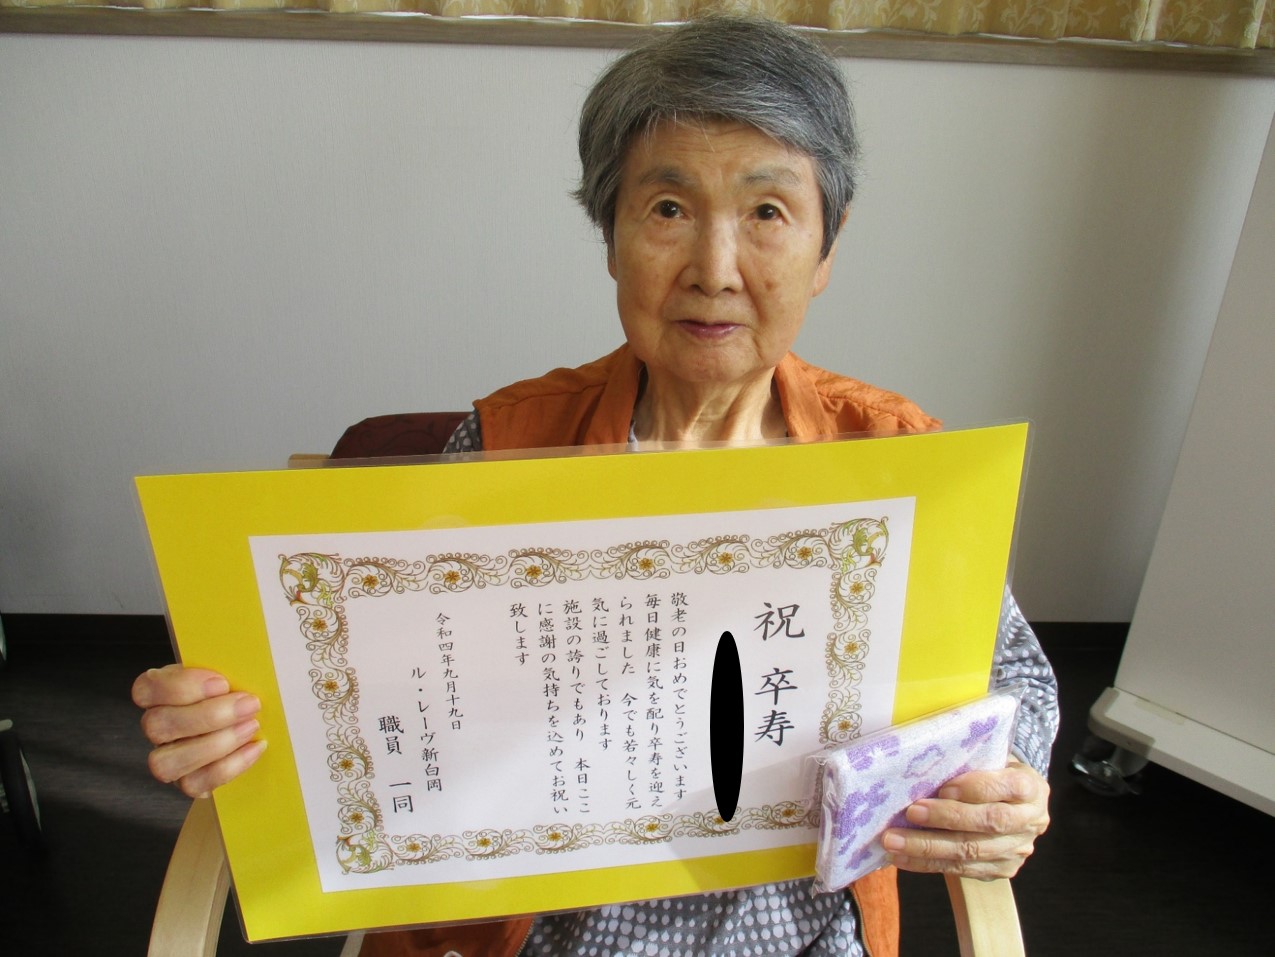 祝 卒寿
敬老の日おめでとうございます
毎日健康に気を配り卒寿を迎え
られました 今でも若々しく元
気に過ごしております
施設の誇りでもあり 本日ここ
に感謝の気持ちを込めてお祝い
致します
令和四年九月十九日
ル・レーヴ新白岡
職員 一同